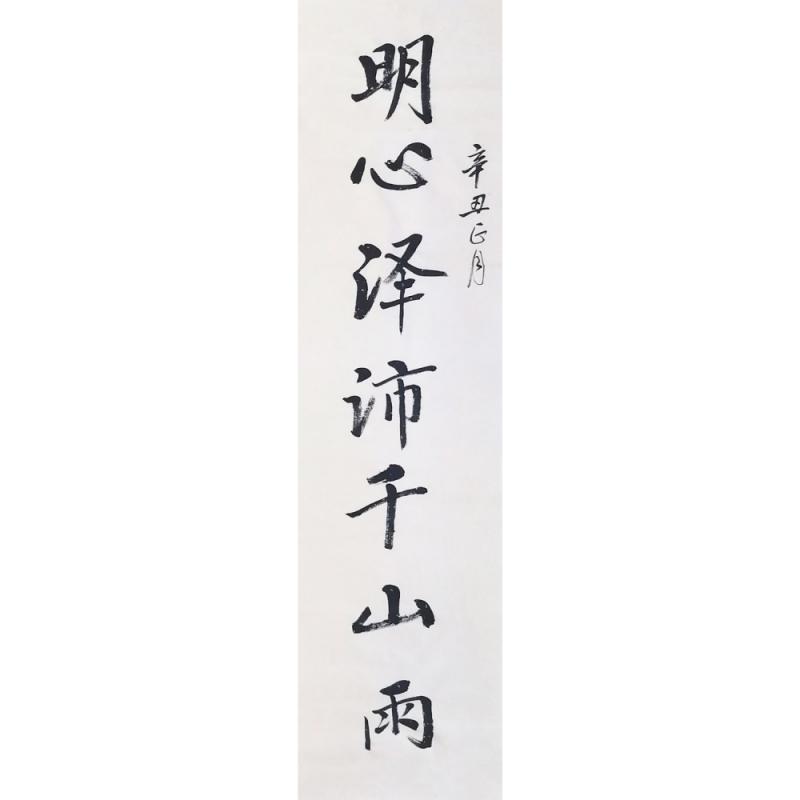 辛丑正月
明心泽沛千山雨